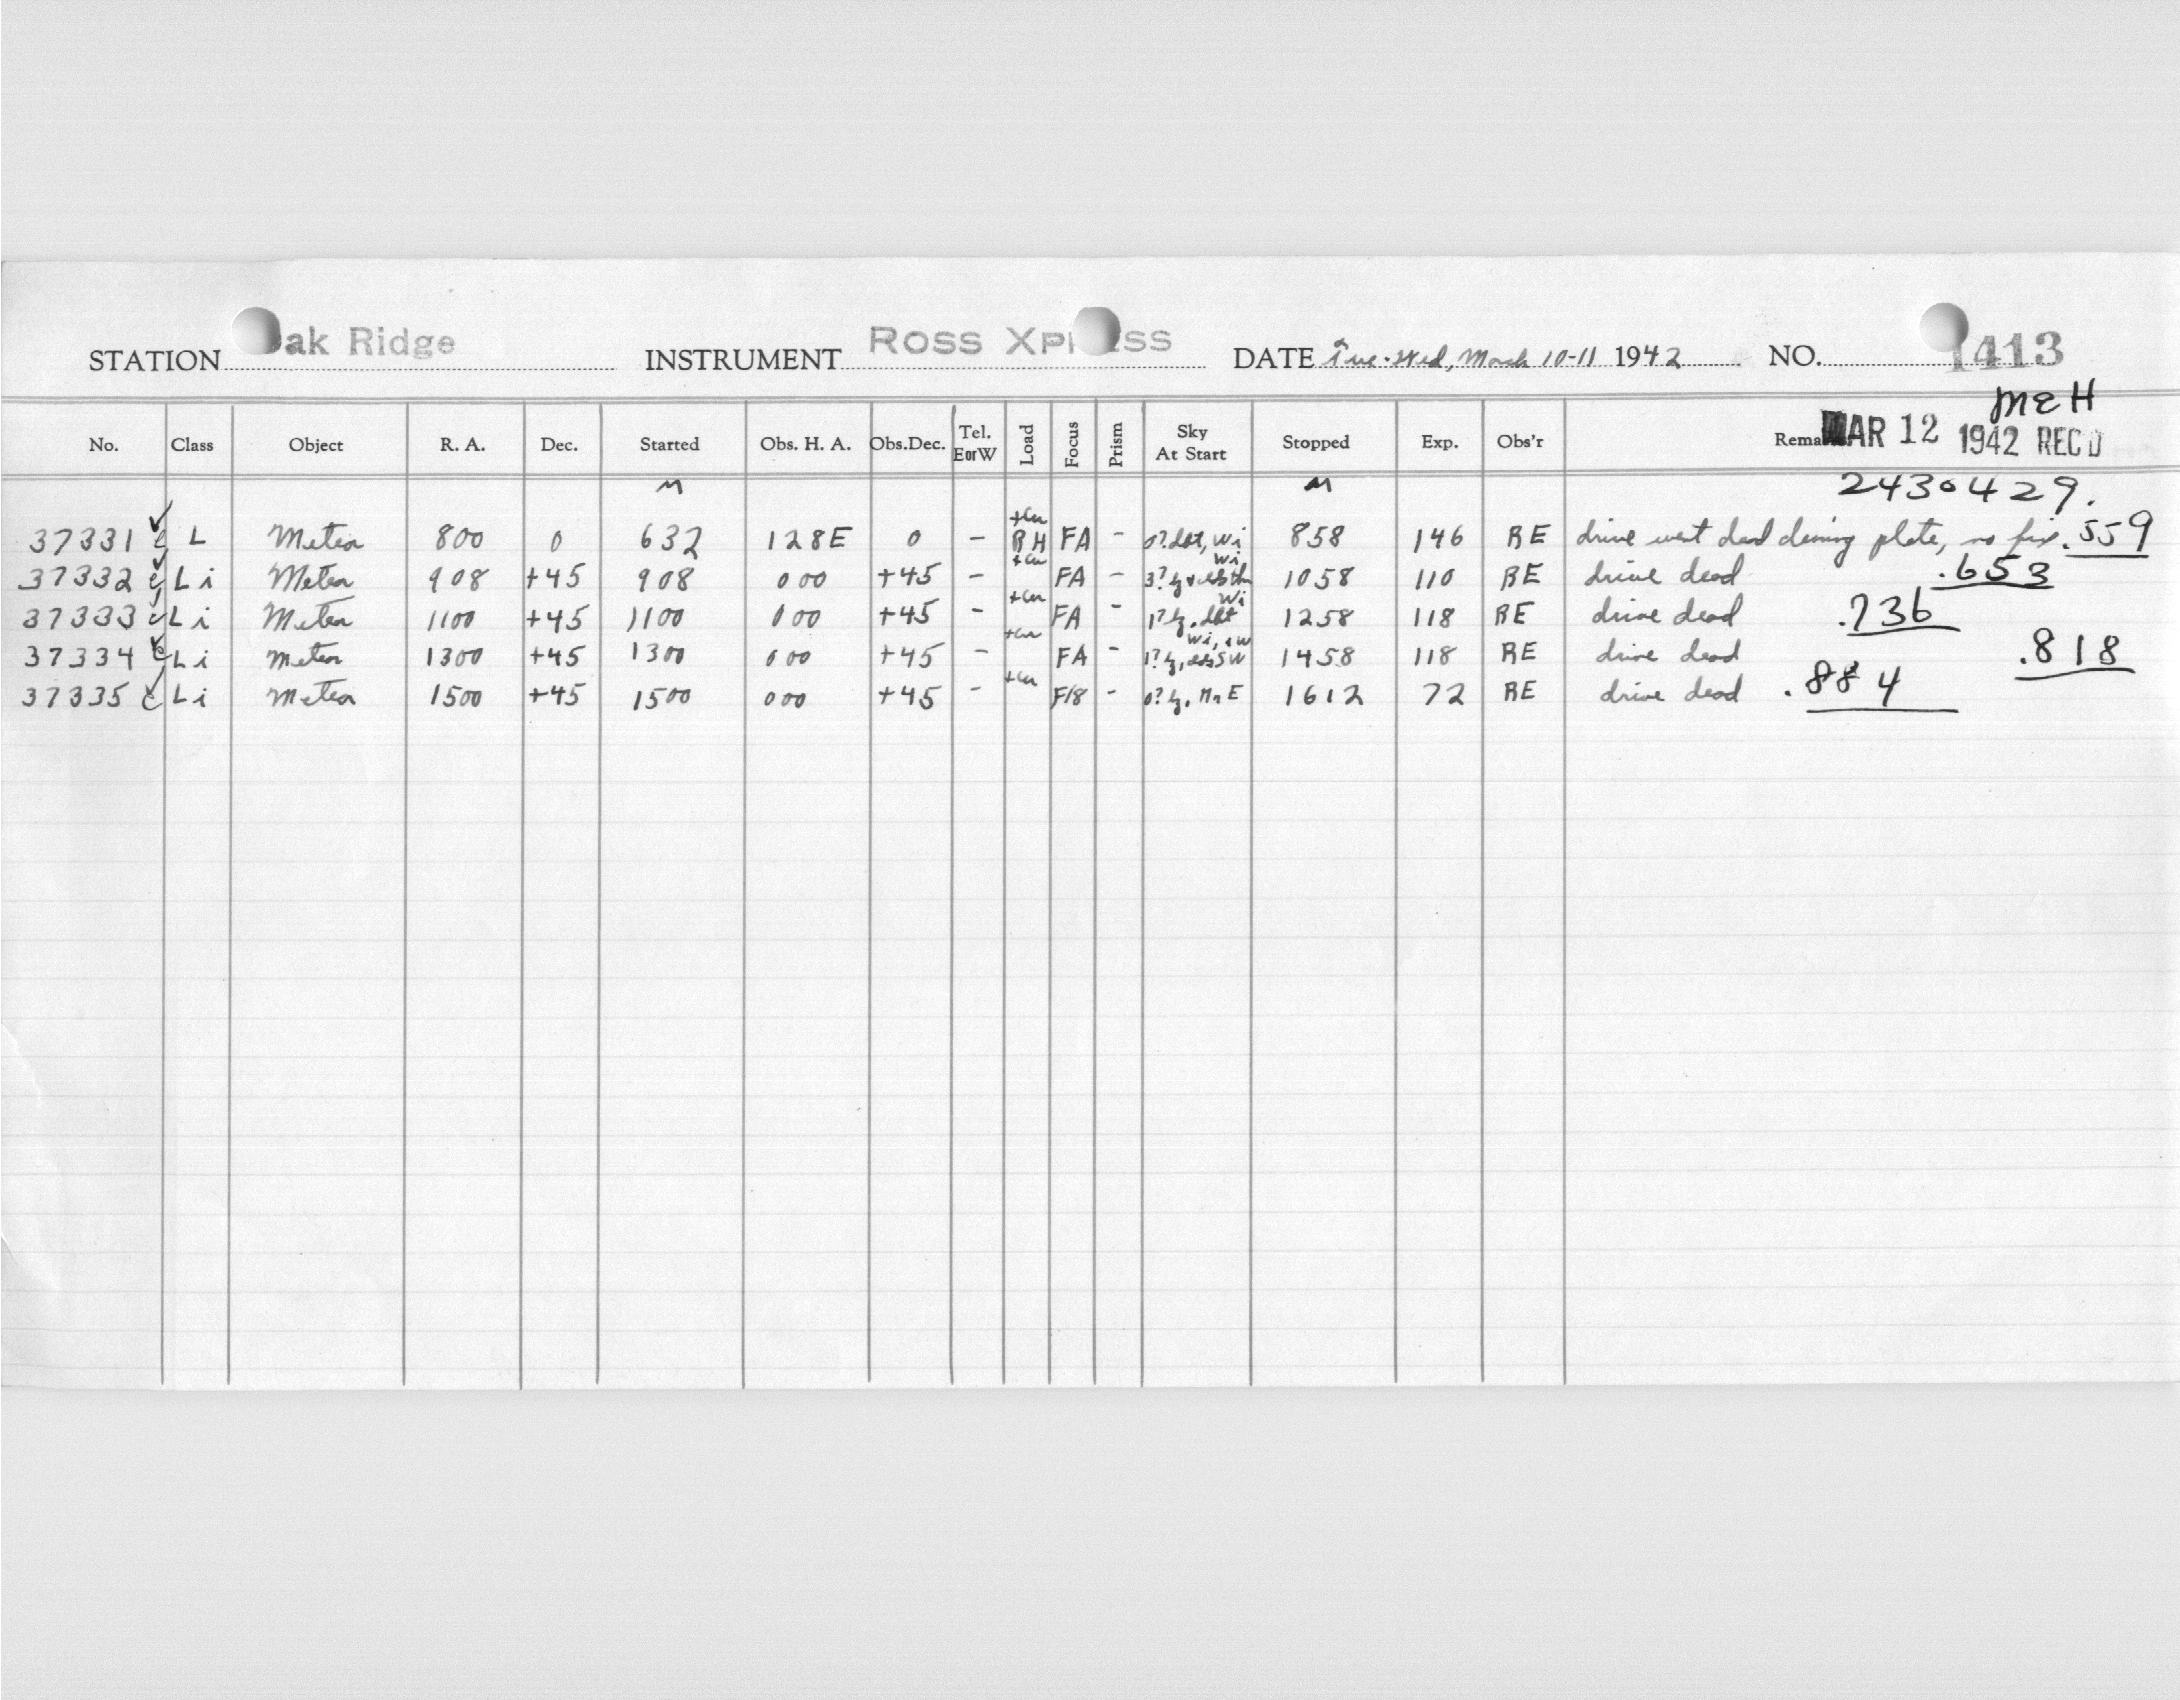 STATION Oak Ridge INSTRUMENT Ross Xpress DATE Tue-Wed, March 10-11 1942 NO. 1413
MEH
MAR 12 1942 REC'D
No. Class Object R. A. Dec. Started Obs. H. A. Obs.Dec. Tel. E or W Load Focus Prism Sky At Start Stopped Exp. Obs'r
M M 2430429.
37331 L Meteor 800 0 632 128E 0 - RH FA - 0? Wi 858 146 RE drive went dead during plate, no fix .559
37332 Li Meteor 908 +45 908 000 +45 - FA - Wi 1058 110 RE drive dead .653
37333 Li Meteor 1100 +45 1100 000 +45 - FA - Wi 1258 118 RE drive dead .736
37334 Li Meteor 1300 +45 1300 000 +45 - FA - 1458 118 RE drive dead .818
37335 Li Meteor 1500 +45 1500 000 +45 - F18 - 1612 72 RE drive dead .884